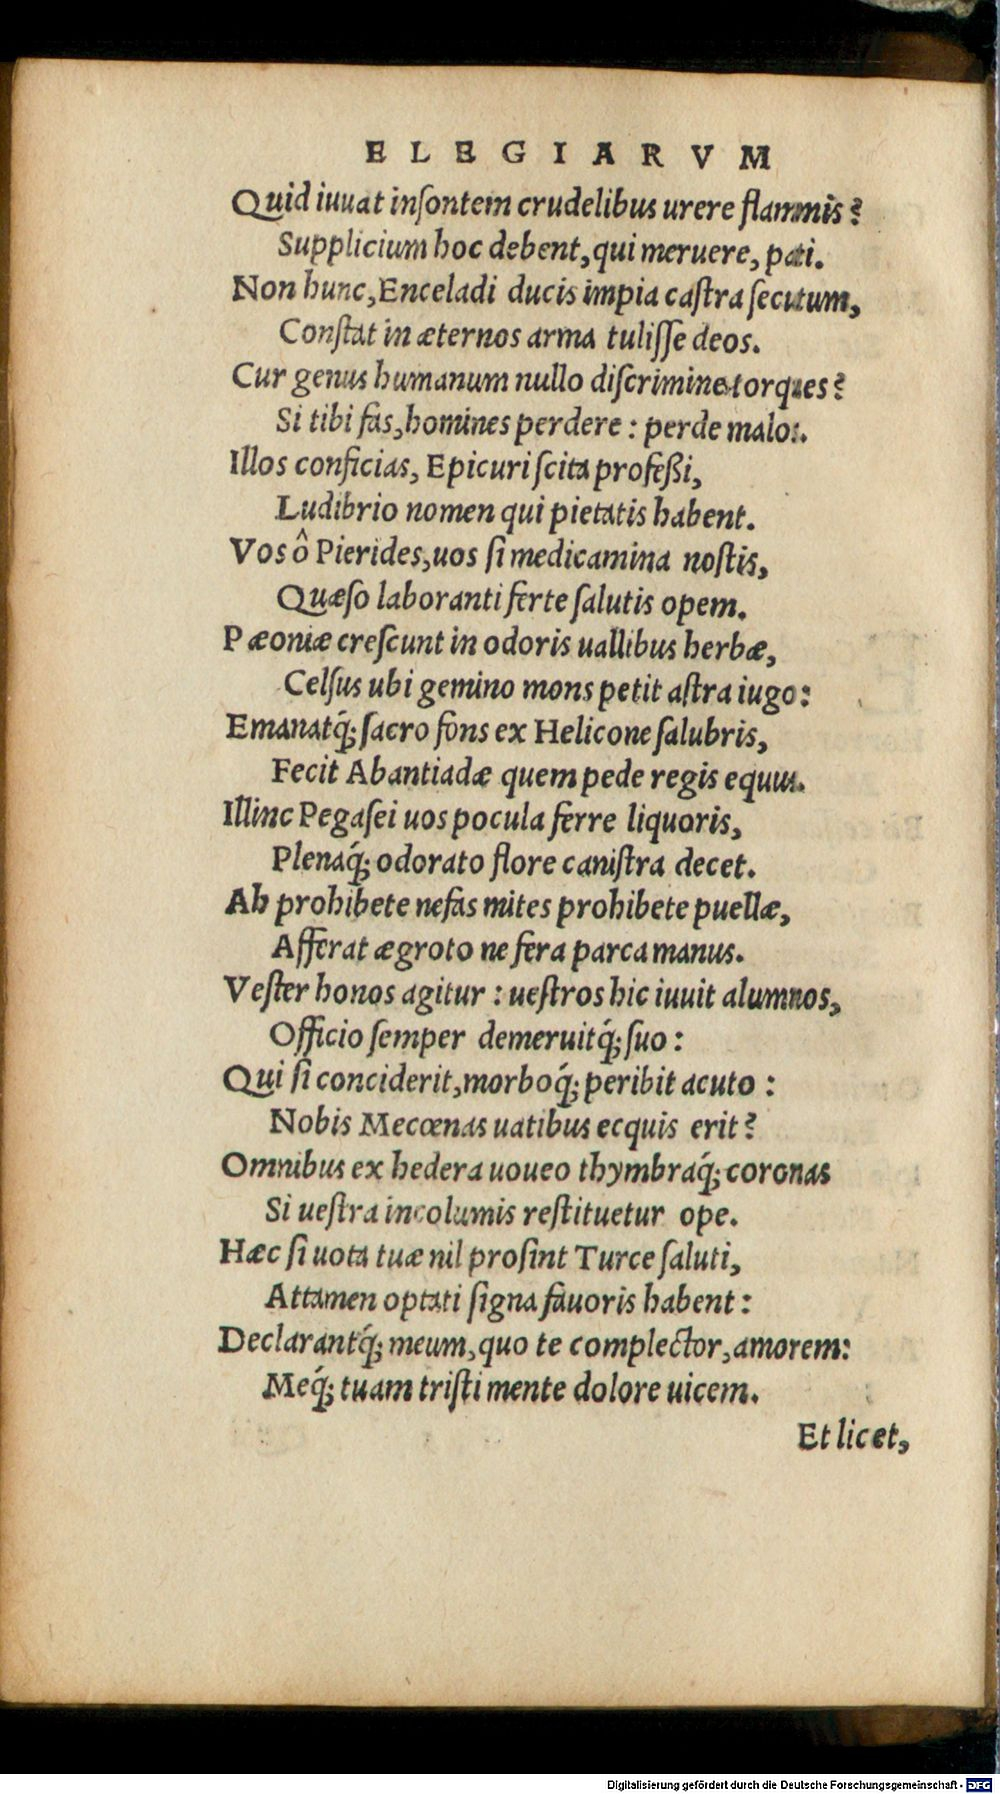 ELEGIARVM
Quid iuuat inſontem crudelibus urere flammis?
Supplicium hoc debent, qui meruere, pati.
Non hunc, Enceladi ducis impia caſtra ſecutum,
Conſtat in æternos arma tuliſſe deos.
Cur genus humanum nullo diſcrimine torques?
Si tibi fas, homines perdere: perde malos.
Illos conficias, Epicuri ſcita profeßi,
Ludibrio nomen qui pietatis habent.
Vos ô Pierides, uos ſi medicamina noſtis,
Quæſo laboranti ferte ſalutis opem.
Pæoniæ creſcunt in odoris uallibus herbæ,
Celſus ubi gemino mons petit aſtra iugo:
Emanatq́; ſacro fons ex Helicone ſalubris,
Fecit Abantiadæ quem pede regis equus.
Illinc Pegaſei uos pocula ferre liquoris,
Plenaq́; odorato flore caniſtra decet.
Ah prohibete nefas mites prohibete puellæ,
Afferat ægroto ne fera parca manus.
Veſter honos agitur: ueſtros hic iuuit alumnos,
Officio ſemper demeruitq́; ſuo:
Qui ſi conciderit, morboq́; peribit acuto:
Nobis Mecœnas uatibus ecquis erit?
Omnibus ex hedera uoueo thymbraq́; coronas
Si ueſtra incolumis reſtituetur ope.
Hæc ſi uota tuæ nil proſint Turce ſaluti,
Attamen optati ſigna fauoris habent:
Declarantq́; meum, quo te complector, amorem:
Meq́; tuam triſti mente dolore uicem.
Et licet,
Digitalisierung gefördert durch die Deutsche Forschungsgemeinschaft - DFG